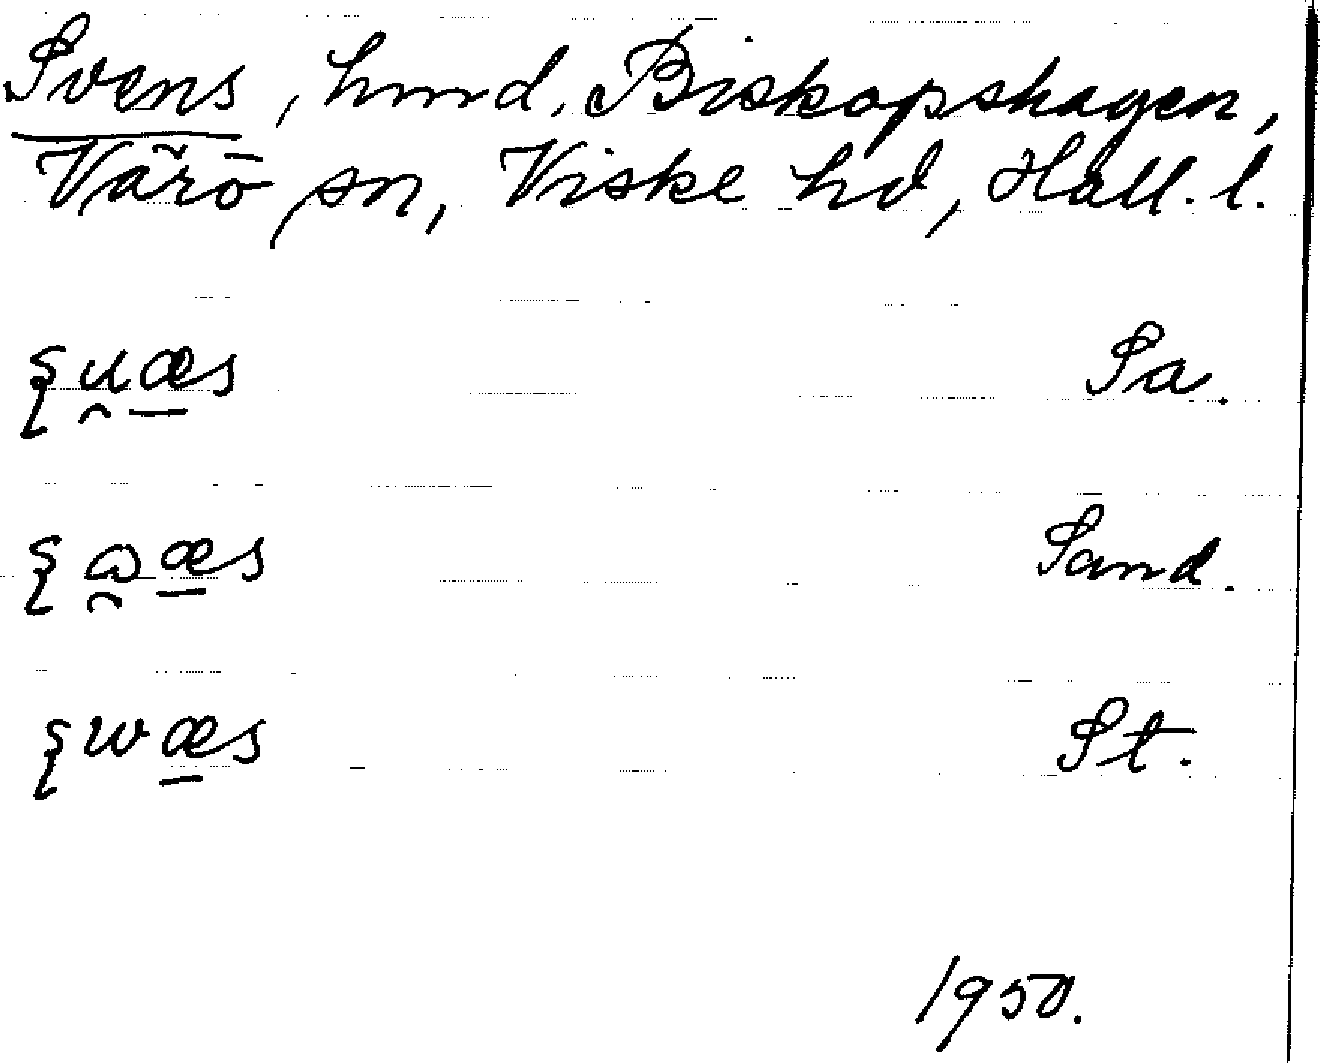 Svens, hmd. Biskopshagen,
Värö sn, Viske hd, Hall. l.
Sa.
Sand.
St.
1950.